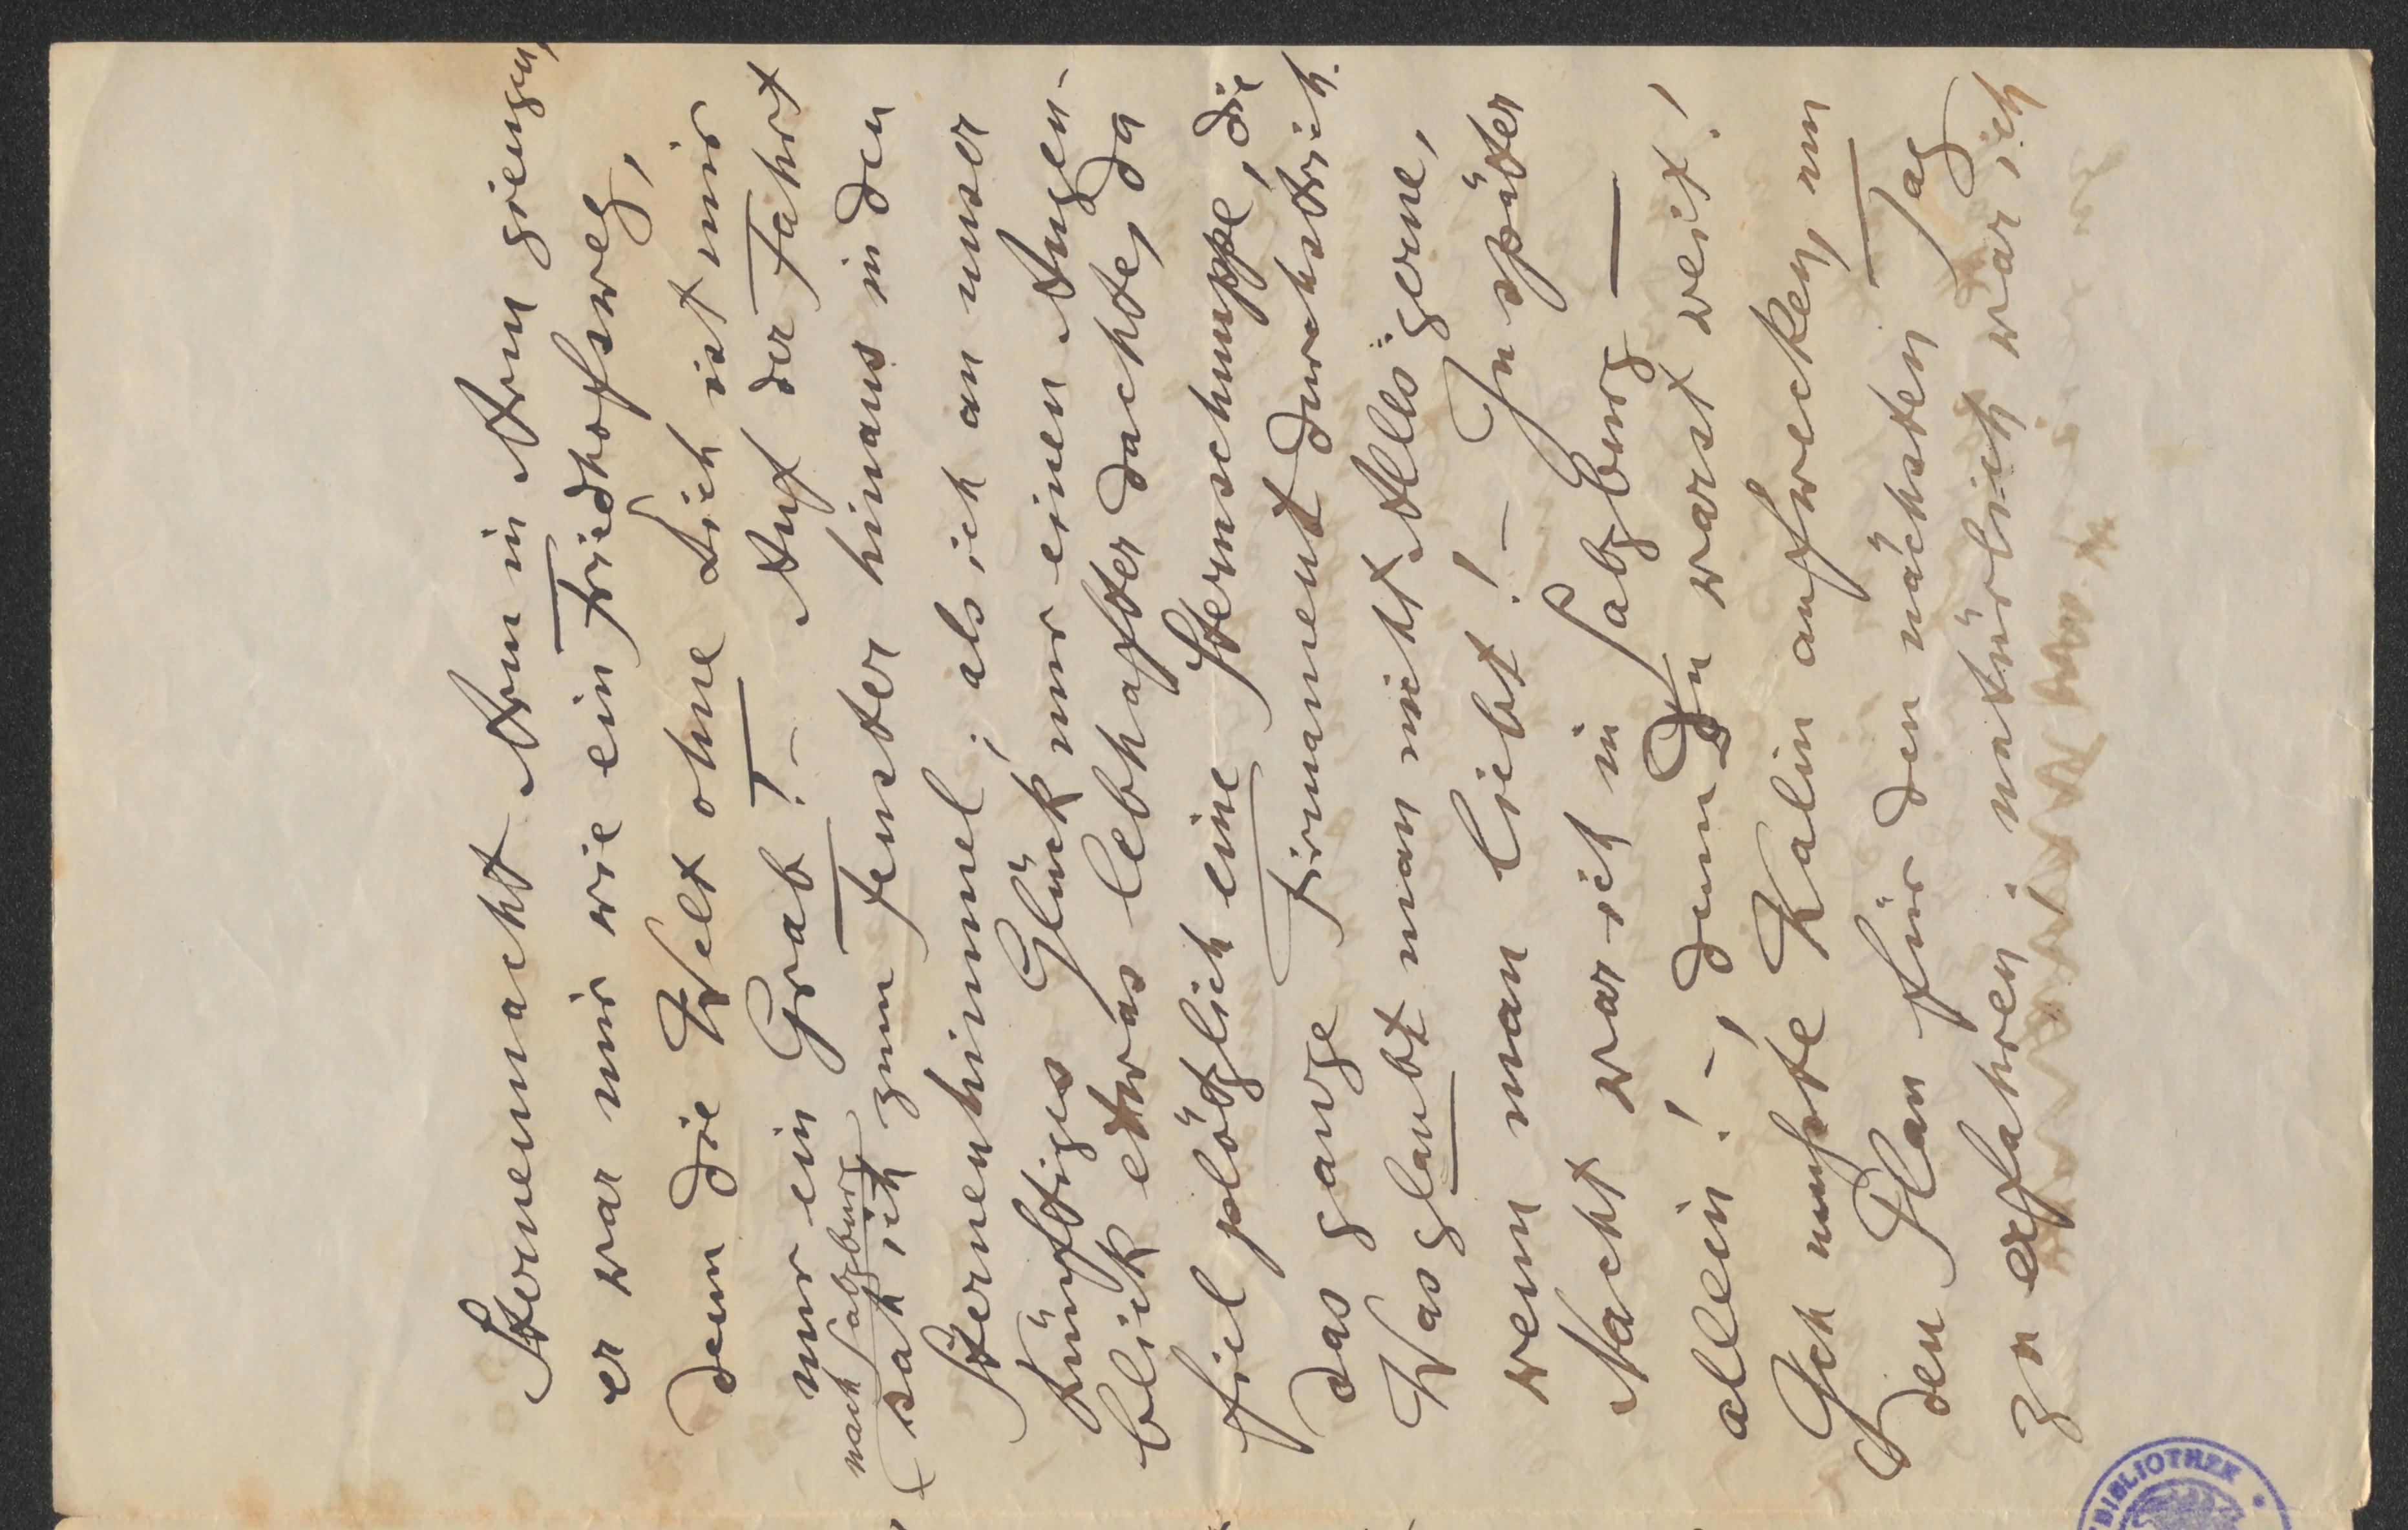 Sternennacht Arm in Arm giengen,
er war mir wie ein Friedhofsweg,
denn die Welt ohne Dich ist mir
nur ein Grab! – Auf der Fahrt
nach Salzburg
sah ich zum Fenster hinaus in den
Sternenhimmel; als ich an unser
künftiges Glück nur einen Augen-
blick etwas lebhafter dachte, da
fiel plötzlich eine Sternschnuppe, die
das ganze Firmament durchstrich.
Was glaubt man nicht Alles gerne,
wenn man liebt! – In später
Nacht war ich in Salzburg –
allein! –, denn Du warst weit!
Ich mußte Kalin aufwecken, um
den Plan für den nächsten Tag
zu erfahren; natürlich war ich
BIBLIOTHEK